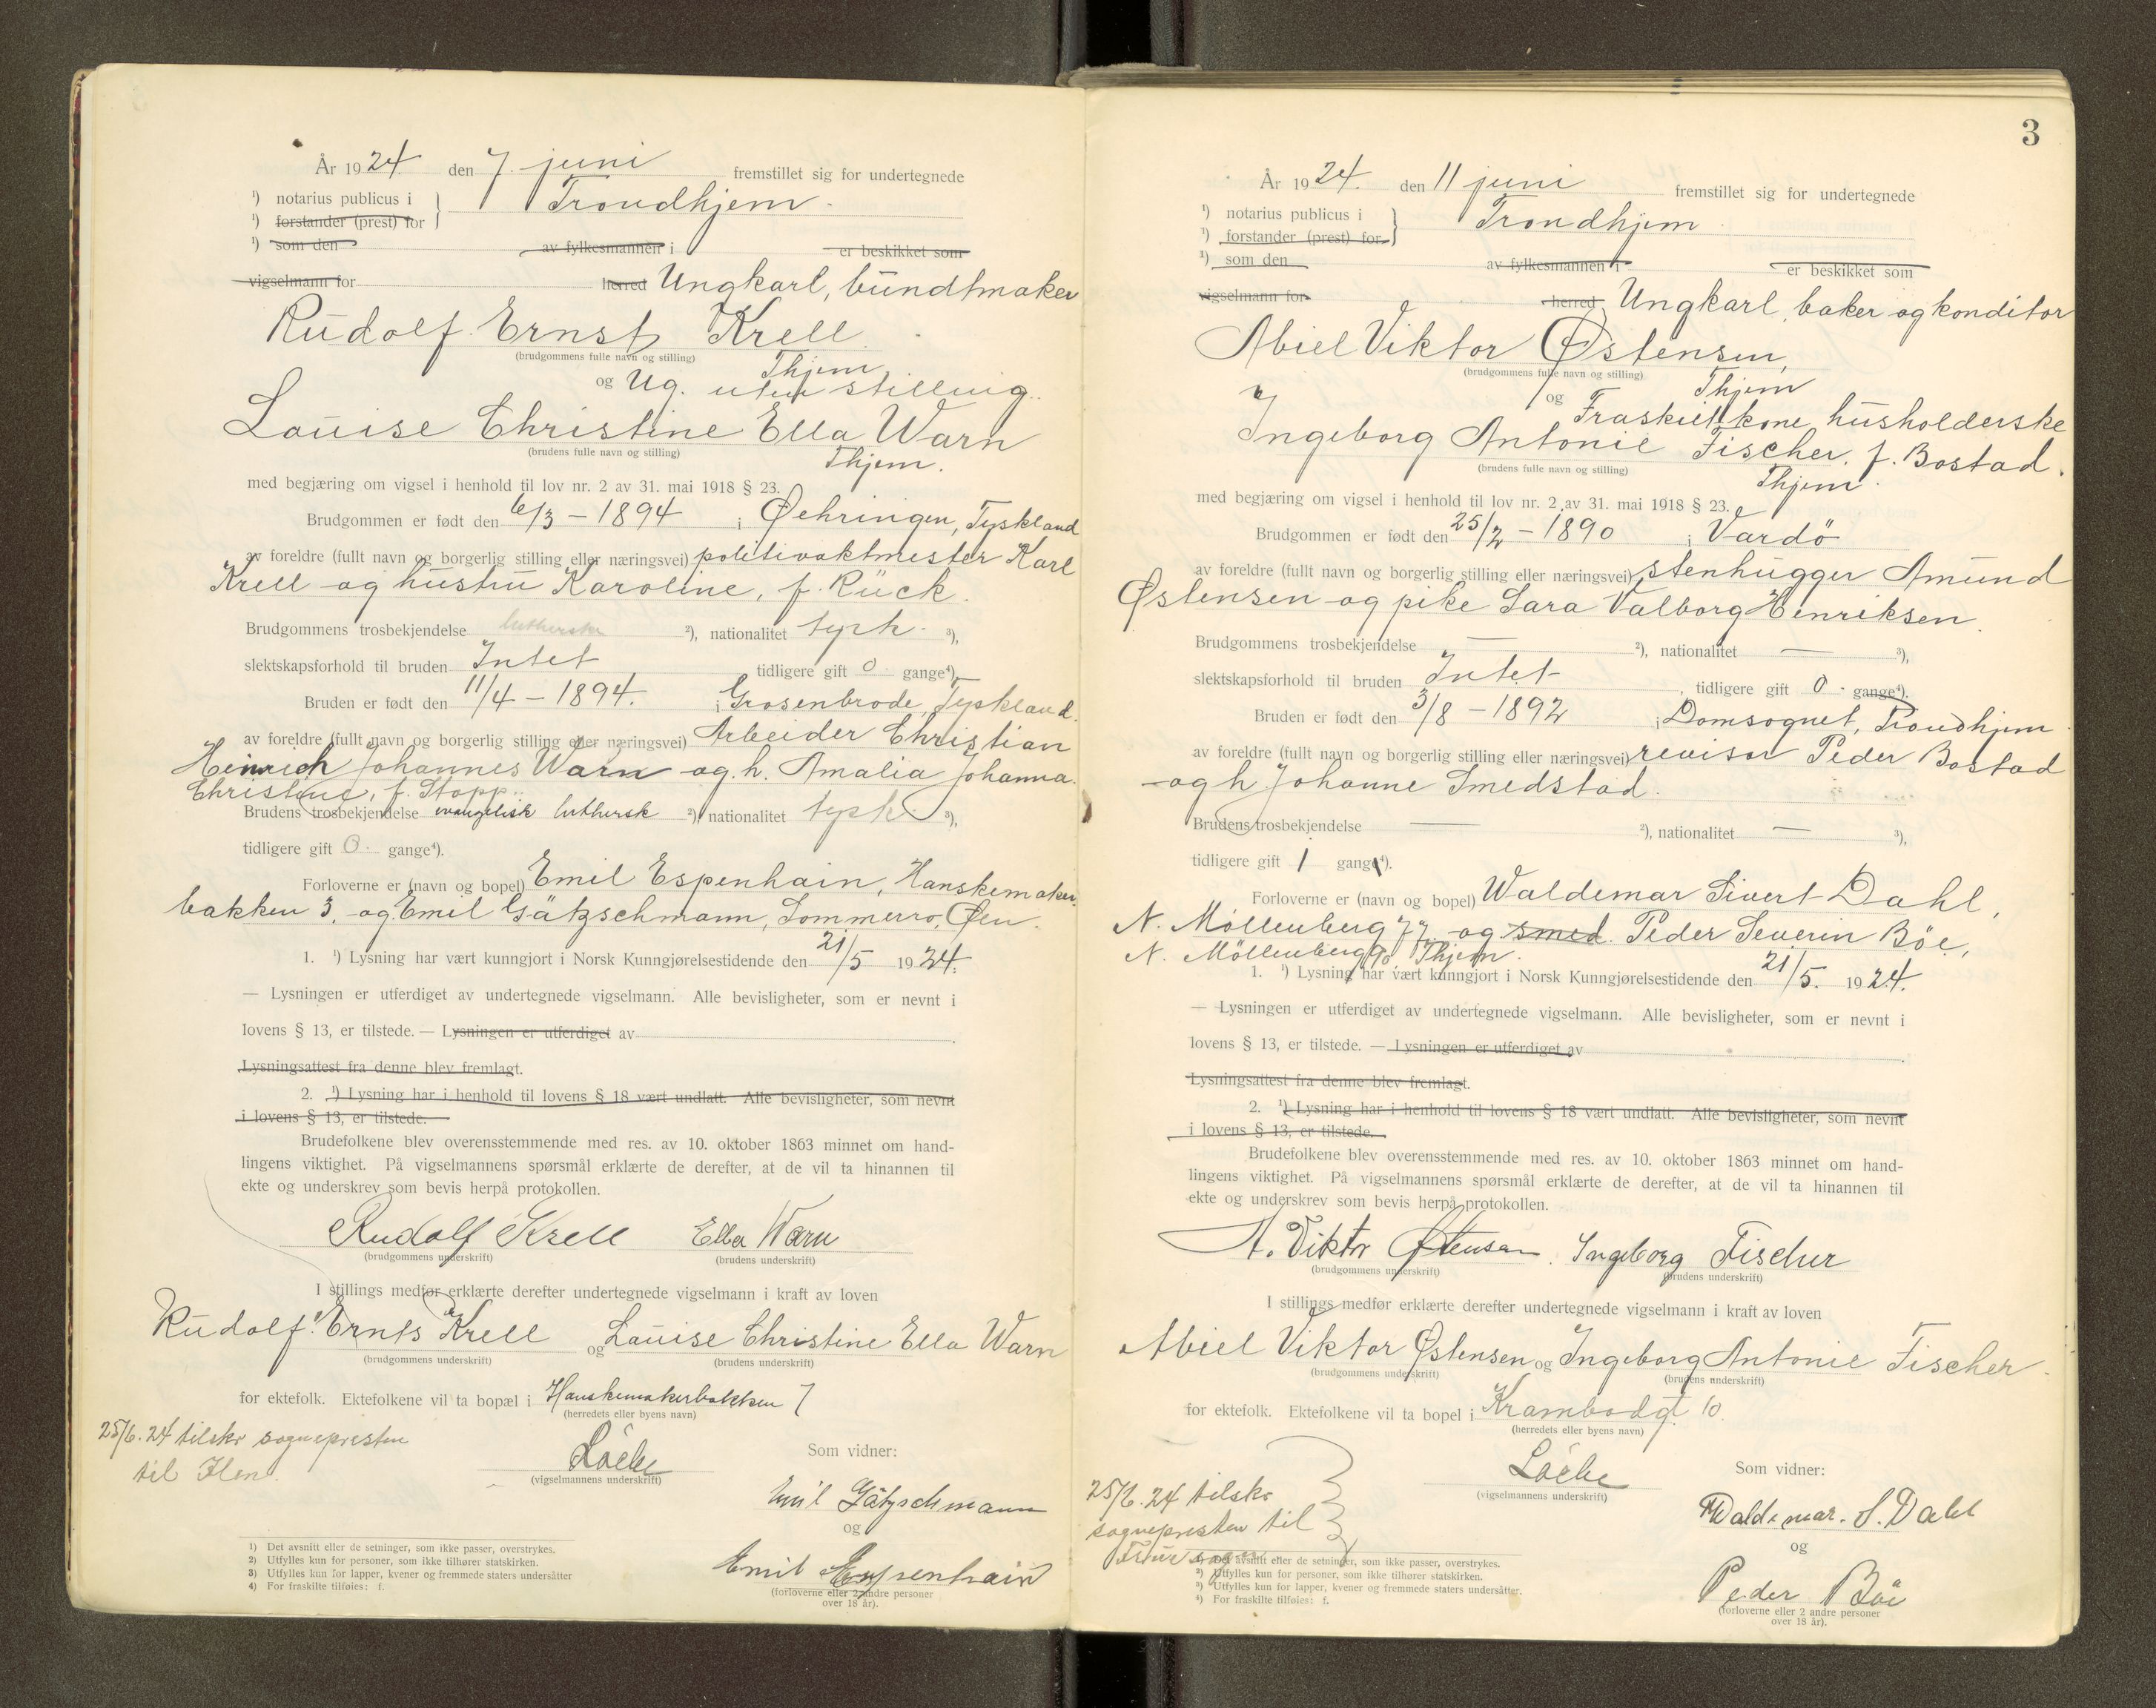 År 1924. den 7. juni fremstillet sig for undertegnede
¹) notarius publicus i
¹) forstander (prest) for } Trondhjem.
¹) som den av fylkesmannen i er beskikket som
vigselmann for herred Ungkarl, bundtmaker
Rudolf Ernst Krell.
(brudgommens fulle navn og stilling)
Thjem
og Ug. uten stilling.
Louise Christine Ella Warn
(brudens fulle navn og stilling)
Thjem.
med begjæring om vigsel i henhold til lov nr. 2 av 31. mai 1918 § 23.
Brudgommen er født den 6/3 - 1894 i Øehringen, Tyskland
av foreldre (fullt navn og borgerlig stilling eller næringsvei) politivaktmester Karl
Krell og hustru Karoline, f. Rück.
Brudgommens trosbekjendelse luthersk ²), nationalitet tysk. ³),
slektskapsforhold til bruden Intet tidligere gift 0 gange⁴),
Bruden er født den 11/4 - 1894. i Grosenbrode, Tyskland.
av foreldre (fullt navn og borgerlig stilling eller næringsvei) Arbeider Christian
Heinrich Johannes Warn og h. Amalia Johanna
Christine, f. Stapp.
Brudens trosbekjendelse evangelisk luthersk ²), nationalitet tysk ³),
tidligere gift 0. gange⁴).
Forloverne er (navn og bopel) Emil Espenhain, Hanskemaker
bakken 3, og Emil Gätzschmann, Sommerro, Øen.
1. ¹) Lysning har vært kunngjort i Norsk Kunngjørelsestidende den 21/5 1924.
— Lysningen er utferdiget av undertegnede vigselmann. Alle bevisligheter, som er nevnt i
lovens § 13, er tilstede. — Lysningen er utferdiget av
Lysningsattest fra denne blev fremlagt.
2. ¹) Lysning har i henhold til lovens § 18 vært undlatt. Alle bevisligheter, som nevnt
i lovens § 13, er tilstede.
Brudefolkene blev overensstemmende med res. av 10. oktober 1863 minnet om hand-
lingens viktighet. På vigselmannens spørsmål erklærte de derefter, at de vil ta hinannen til
ekte og underskrev som bevis herpå protokollen.
Rudolf Krell Ella Warn
(brudgommens underskrift) (brudens underskrift)
I stillings medfør erklærte derefter undertegnede vigselmann i kraft av loven
Rudolf Ernts Krell og Louise Christine Ella Warn
(brudgommens underskrift) (brudens underskrift)
for ektefolk. Ektefolkene vil ta bopæl i Hanskemakerbakken 7
(herredets eller byens navn)
25/6.24 tilskr sognepresten
til Ilen.
Löcke
(vigselmannens underskrift)
Som vidner:
Emil Gätzschmann
og
Emil Espenhain
(forloverne eller 2 andre personer
over 18 år).
1) Det avsnitt eller de setninger, som ikke passer, overstrykes.
2) Utfylles kun for personer, som ikke tilhører statskirken.
3) Utfylles kun for lapper, kvener og fremmede staters undersåtter
4) For fraskilte tilføies: f.
3
År 1924. den 11 juni fremstillet sig for undertegnede
¹) notarius publicus i
¹) forstander (prest) for } Trondhjem
¹) som den av fylkesmannen i er beskikket som
vigselmann for herred Ungkarl, baker og konditor
Abiel Viktor Østensen,
(brudgommens fulle navn og stilling)
Thjem
og Fraskilt kone, husholderske
Ingeborg Antonie Fischer, f. Bostad.
(brudens fulle navn og stilling)
Thjem.
med begjæring om vigsel i henhold til lov nr. 2 av 31. mai 1918 § 23.
Brudgommen er født den 25/2 - 1890 i Vardö
av foreldre (fullt navn og borgerlig stilling eller næringsvei) stenhugger Amund
Østensen og pike Sara Valborg Henriksen.
Brudgommens trosbekjendelse — ²), nationalitet — ³),
slektskapsforhold til bruden Intet, tidligere gift 0 gange⁴).
Bruden er født den 3/8 - 1892 i Domsognet, Trondhjem
av foreldre (fullt navn og borgerlig stilling eller næringsvei) revisor Peder Bostad
og h Johanne Smedstad.
Brudens trosbekjendelse — ²), nationalitet — ³),
tidligere gift 1 gang⁴).
Forloverne er (navn og bopel) Waldemar Sivert Dahl,
N. Möllenberg 77, og smed. Peder Severin Böe,
N. Möllenberg Thjem.
1. ¹) Lysning har vært kunngjort i Norsk Kunngjørelsestidende den 21/5. 1924.
— Lysningen er utferdiget av undertegnede vigselmann. Alle bevisligheter, som er nevnt i
lovens § 13, er tilstede. — Lysningen er utferdiget av
Lysningsattest fra denne blev fremlagt.
2. ¹) Lysning har i henhold til lovens § 18 vært undlatt. Alle bevisligheter, som nevnt
i lovens § 13, er tilstede.
Brudefolkene blev overensstemmende med res. av 10. oktober 1863 minnet om hand-
lingens viktighet. På vigselmannens spørsmål erklærte de derefter, at de vil ta hinannen til
ekte og underskrev som bevis herpå protokollen.
A. Viktor Østensen. Ingeborg Fischer
(brudgommens underskrift) (brudens underskrift)
I stillings medfør erklærte derefter undertegnede vigselmann i kraft av loven
Abiel Viktor Østensen og Ingeborg Antonie Fischer.
(brudgommens underskrift) (brudens unnderskrift)
for ektefolk. Ektefolkene vil ta bopel i Krambodgt. 10.
(herredets eller byens navn)
25/6.24 tilskr
sognepresten til
Löcke
(vigselmannens underskrift)
Som vidner:
Waldemar. S. Dahl
og
Peder Böe
(forloverne eller 2 andre personer
over 18 år).
¹) Det avsnitt eller de setninger, som ikke passer, overstrykes.
²) Utfylles kun for personer, som ikke tilhører statskirken.
³) Utfylles kun for lapper, kvener og fremmede staters undersåtter.
⁴) For fraskilte tilføies: f.